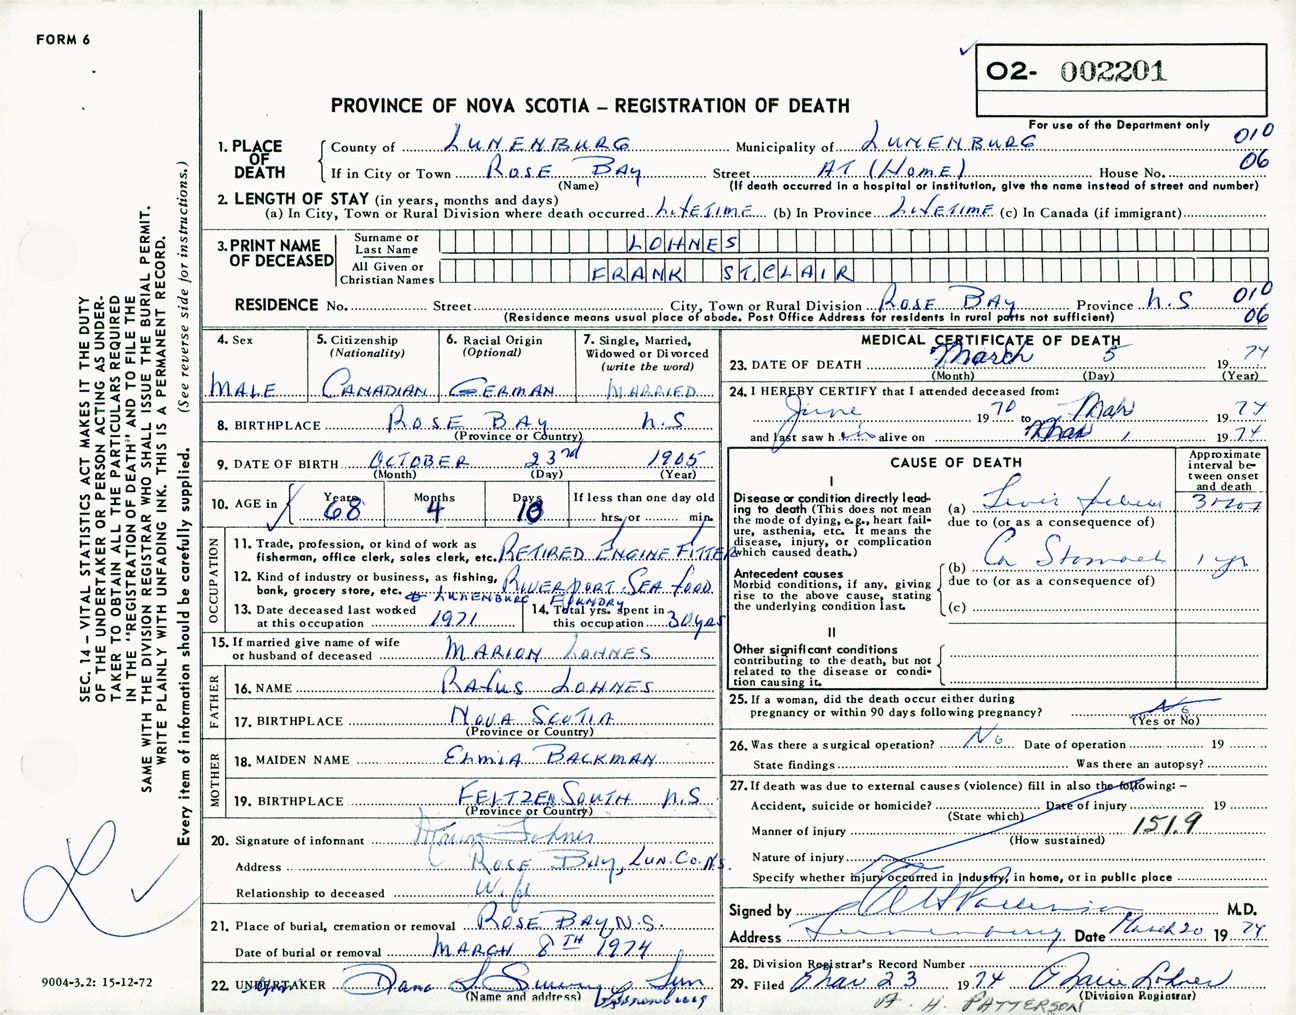 FORM 6
02- 002201
For use of the Department only
PROVINCE OF NOVA SCOTIA – REGISTRATION OF DEATH
010
06
1. PLACE OF DEATH
County of LUNENBURG Municipality of LUNENBURG
If in City or Town ROSE BAY Street AT (HOME) House No.
(Name) (If death occurred in a hospital or institution, give the name instead of street and number)
2. LENGTH OF STAY (in years, months and days)
(a) In City, Town or Rural Division where death occurred LIFETIME (b) In Province LIFETIME (c) In Canada (if immigrant)
3. PRINT NAME OF DECEASED
Surname or Last Name LOHNES
All Given or Christian Names FRANK ST.CLAIR
RESIDENCE No. Street City, Town or Rural Division ROSE BAY Province N.S 010
(Residence means usual place of abode. Post Office Address for residents in rural parts not sufficient) 06
4. Sex MALE
5. Citizenship (Nationality) CANADIAN
6. Racial Origin (Optional) GERMAN
7. Single, Married, Widowed or Divorced (write the word) MARRIED
8. BIRTHPLACE ROSE BAY N.S
(Province or Country)
9. DATE OF BIRTH OCTOBER 23rd 1905
(Month) (Day) (Year)
10. AGE in Years 68 Months 4 Days If less than one day old hrs. or min.
OCCUPATION
11. Trade, profession, or kind of work as fisherman, office clerk, sales clerk, etc. RETIRED ENGINE FITTER
12. Kind of industry or business, as fishing, bank, grocery store, etc. RIVERPORT SEA FOOD
LUNENBURG FOUNDRY
13. Date deceased last worked at this occupation 1971
14. Total yrs. spent in this occupation 30 yrs
15. If married give name of wife or husband of deceased MARION LOHNES
FATHER
16. NAME RAFUS LOHNES
17. BIRTHPLACE NOVA SCOTIA
(Province or Country)
MOTHER
18. MAIDEN NAME BACKMAN
19. BIRTHPLACE FELTZEN SOUTH N.S
(Province or Country)
20. Signature of informant Marion Lohnes
Address ROSE BAY, LUN. CO. N.S.
Relationship to deceased Wife
21. Place of burial, cremation or removal ROSE BAY, N.S.
Date of burial or removal MARCH 8TH 1974
22. UNDERTAKER Dana L. Sweeny
(Name and address) Lunenburg
MEDICAL CERTIFICATE OF DEATH
23. DATE OF DEATH March 5 1974
(Month) (Day) (Year)
24. I HEREBY CERTIFY that I attended deceased from:
June 1970 to Mar 1974
and last saw him alive on Mar 1 1974
CAUSE OF DEATH
Approximate interval between onset and death
I
Disease or condition directly leading to death (This does not mean the mode of dying, e.g., heart failure, asthenia, etc. It means the disease, injury, or complication which caused death.)
(a) Liver failure
due to (or as a consequence of)
(b) Ca Stomach 1 yr
due to (or as a consequence of)
(c)
Antecedent causes
Morbid conditions, if any, giving rise to the above cause, stating the underlying condition last.
II
Other significant conditions contributing to the death, but not related to the disease or condition causing it.
25. If a woman, did the death occur either during pregnancy or within 90 days following pregnancy? No
(Yes or No)
26. Was there a surgical operation? No Date of operation 19
State findings Was there an autopsy?
27. If death was due to external causes (violence) fill in also the following: –
Accident, suicide or homicide? Date of injury 19
(State which)
Manner of injury 151.9
(How sustained)
Nature of injury
Specify whether injury occurred in Industry, in home, or in public place
Signed by M.D.
Address Lunenburg Date March 20 1974
28. Division Registrar's Record Number
29. Filed Mar 23 1974 Lohnes
(Division Registrar)
H. PATTERSON
SEC. 14 – VITAL STATISTICS ACT MAKES IT THE DUTY
OF THE UNDERTAKER OR PERSON ACTING AS UNDER-
TAKER TO OBTAIN ALL THE PARTICULARS REQUIRED
IN THE "REGISTRATION OF DEATH" AND TO FILE THE
SAME WITH THE DIVISION REGISTRAR WHO SHALL ISSUE THE BURIAL PERMIT.
WRITE PLAINLY WITH UNFADING INK. THIS IS A PERMANENT RECORD.
Every item of information should be carefully supplied. (See reverse side for instructions.)
9004-3.2: 15-12-72